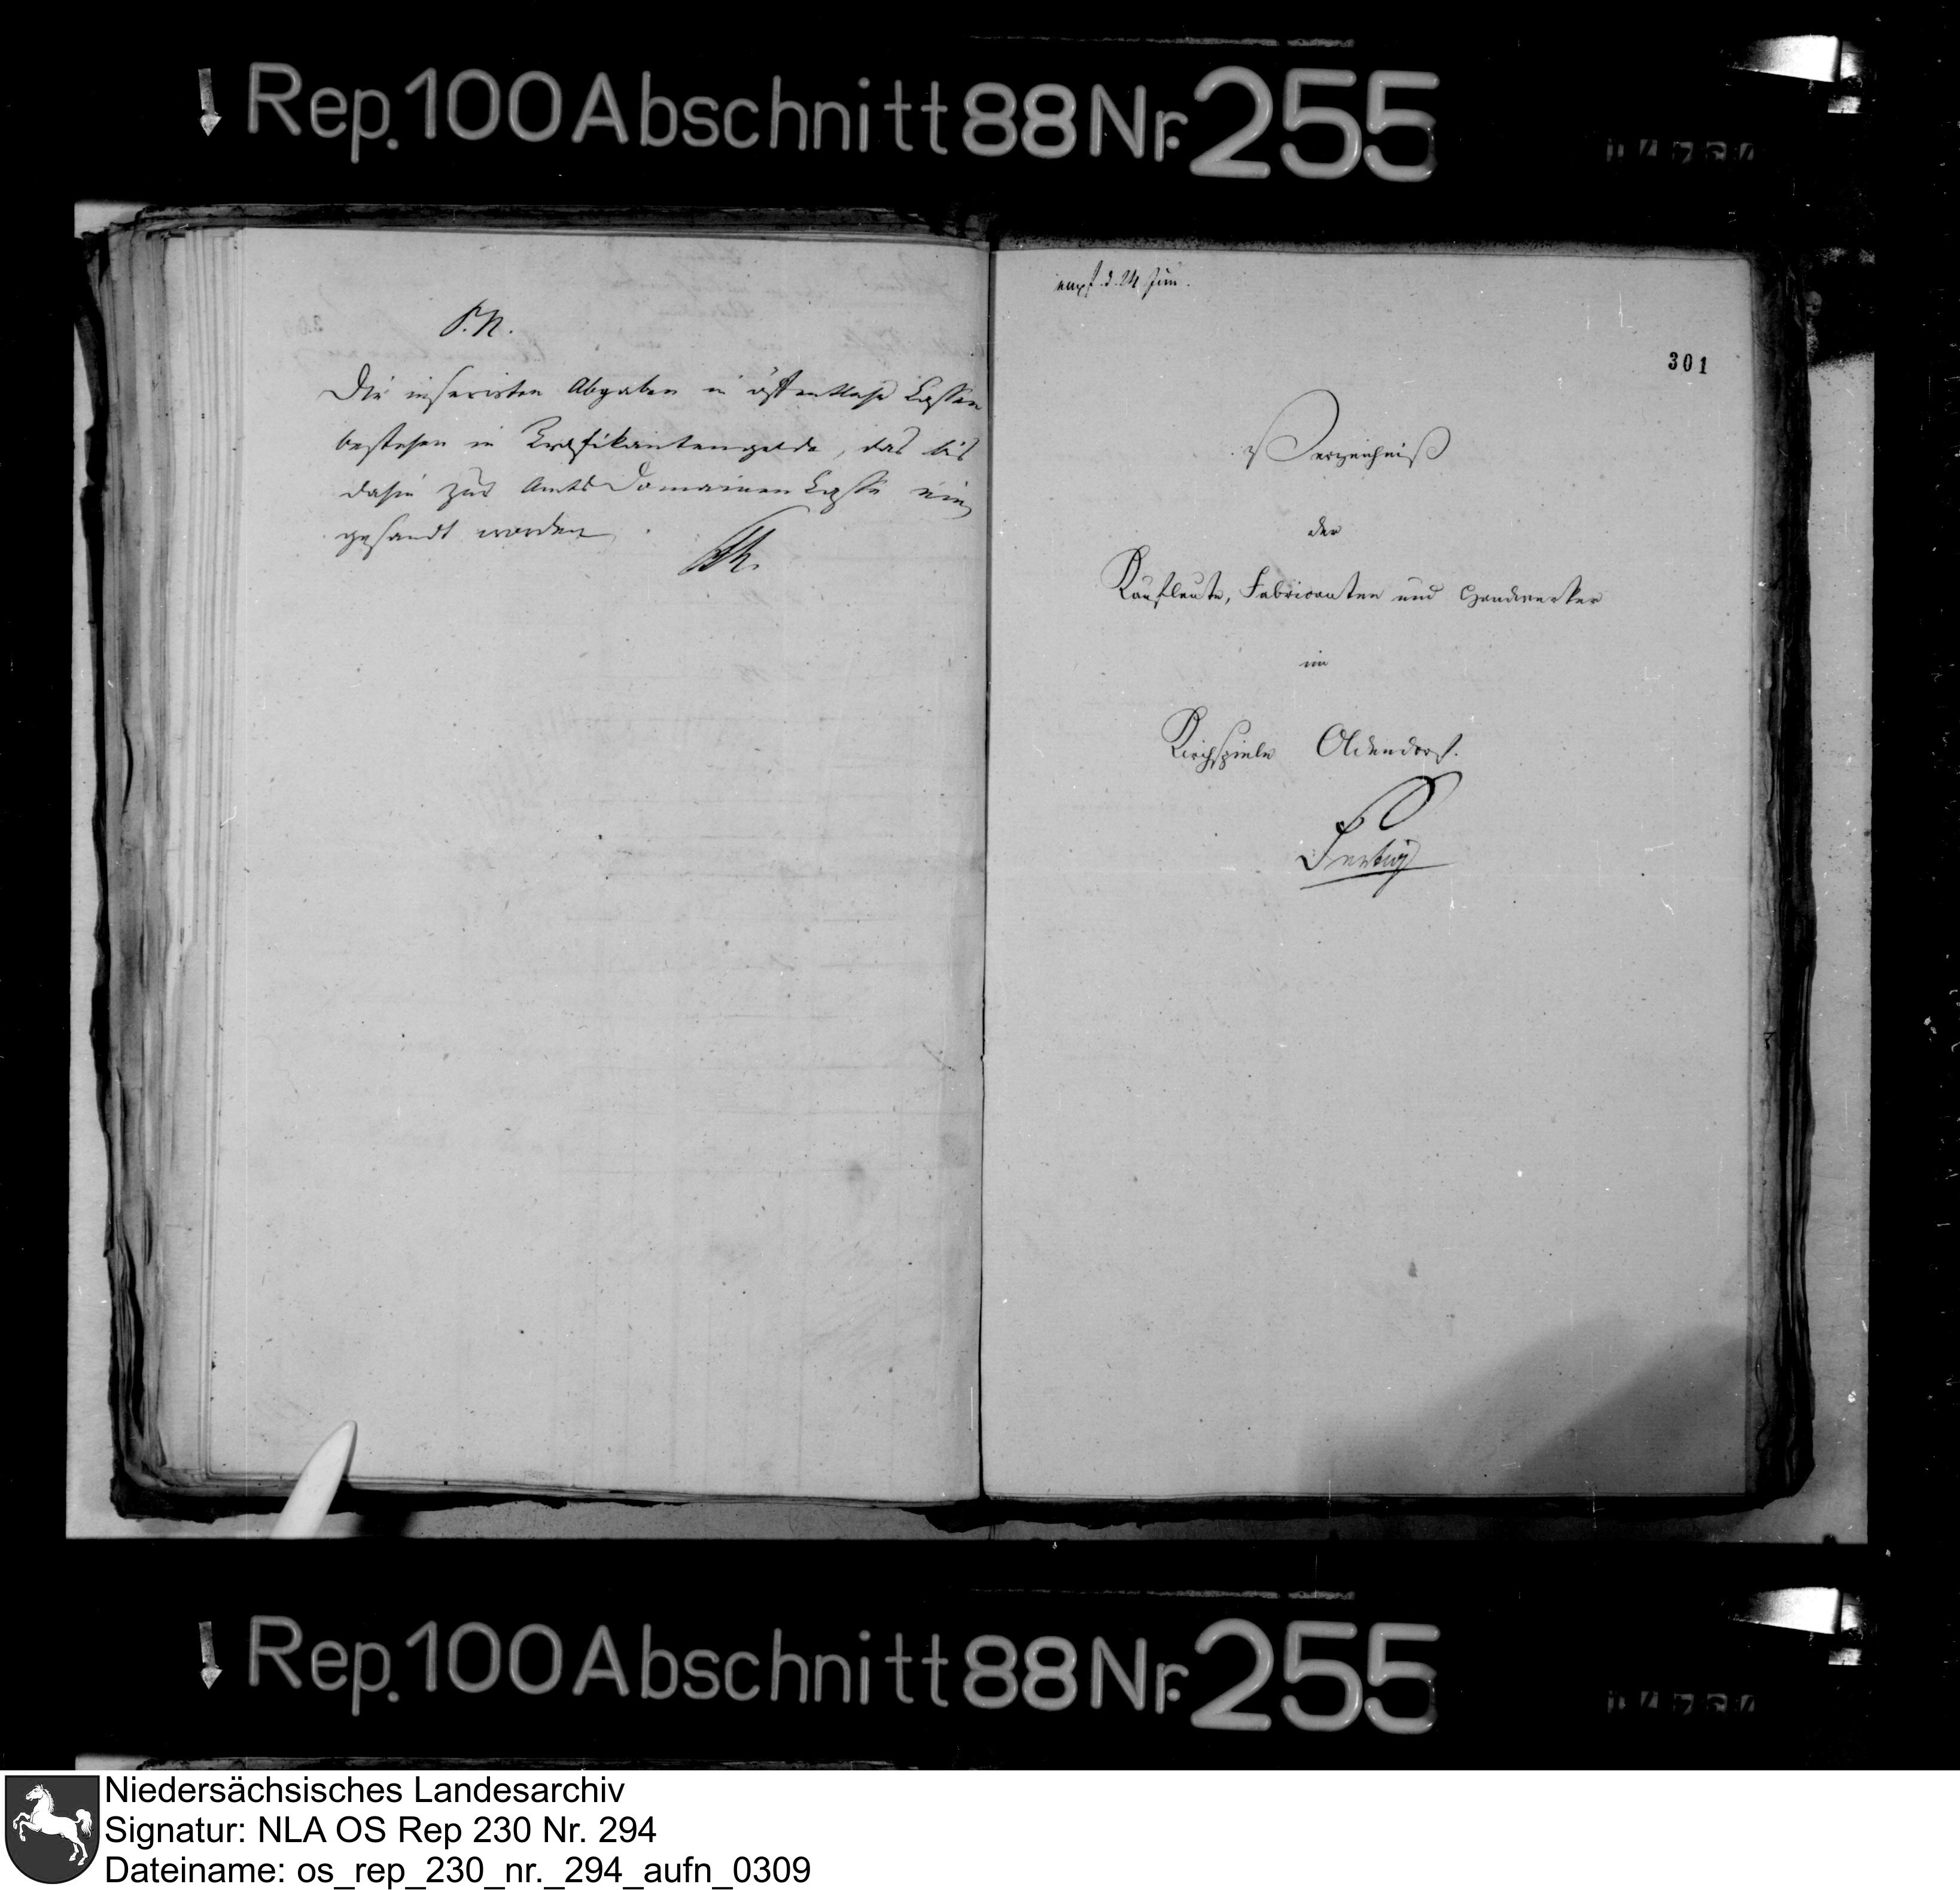 Rep. 100 Abschnitt 88 Nr. 255
P. N.
Die inserirten Abgaben in öffentliche Cassen
bestehen in Profikantengelde, das bis
dahin zur Amts Domainen Casse ein
gesandt worden.
empf. d. 24 Jun.
301
Verzeichniß
der
Kaufleute, Fabricanten und Handwerker
im
Kirchspiele Oldendorf.
Rep. 100 Abschnitt 88 Nr. 255
Niedersächsisches Landesarchiv
Signatur: NLA OS Rep 230 Nr. 294
Dateiname: os_rep_230_nr._294_aufn_0309